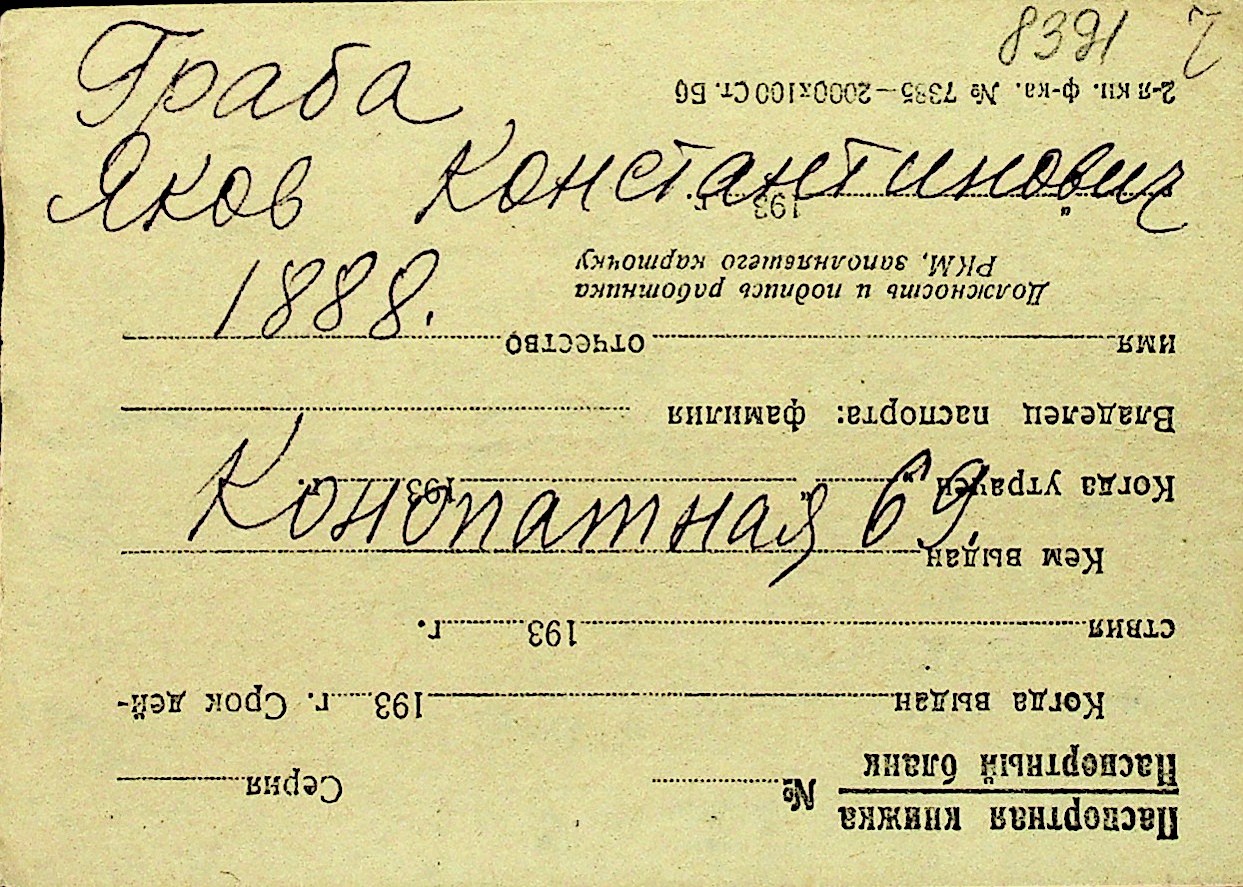 8391
Граба
Яков Константинович
1888.
Конопатная 69.
Паспортная книжка
Паспортный бланк
№ Серия
Когда выдан 193 г. Срок дей-
ствия 193 г.
Кем выдан
Когда утрачен „ “ 193 г.
Владелец паспорта: фамилия
имя отчество
Должность и подпись работника
РКМ, заполнявшего карточку
„ “ 193 г.
2-я кн. ф-ка. № 7385—2000х100 Ст. Б6